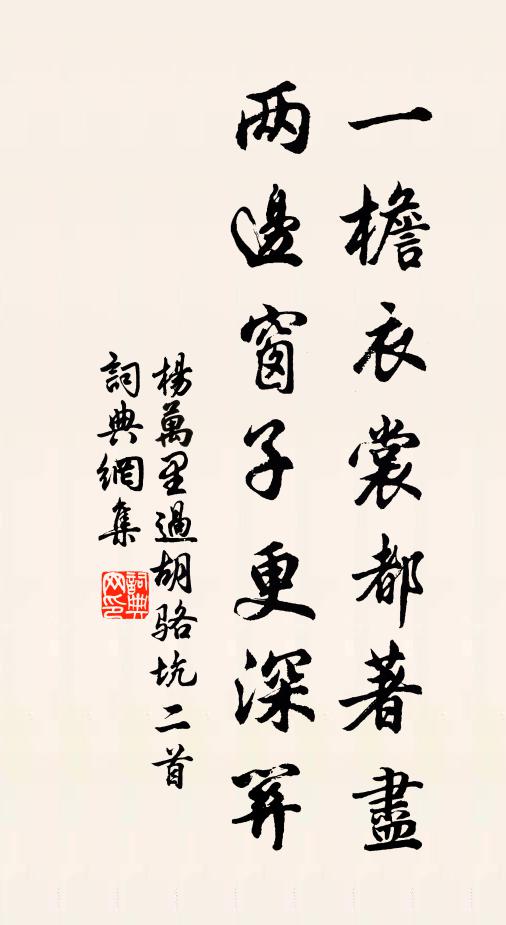 一檐衣裳都著盡
两邊窗子更深關
楊萬里過胡駱坑二首
詞典網集
詞典網印